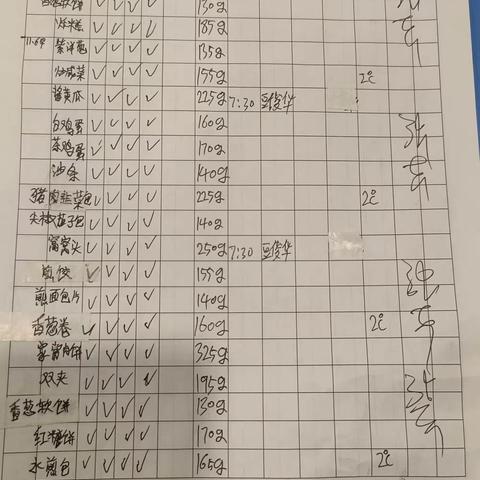 香葱软饼 ✓ ✓ ✓ ✓ 130g
✓ ✓ ✓ ✓ 185g
紫洋葱 ✓ ✓ ✓ ✓ 135g
炒咸菜 ✓ ✓ ✓ ✓ 155g 2℃
酱黄瓜 ✓ ✓ ✓ ✓ 225g 7:30
白鸡蛋 ✓ ✓ ✓ ✓ 160g
茶鸡蛋 ✓ ✓ ✓ ✓ 170g
油条 ✓ ✓ ✓ ✓ 140g
猪肉韭菜包 ✓ ✓ ✓ ✓ 225g 2℃
尖椒茄子包 ✓ ✓ ✓ ✓ 140g
窝窝头 ✓ ✓ ✓ ✓ 250g 7:30
煎饺 ✓ ✓ ✓ ✓ 155g
煎面包片 ✓ ✓ ✓ ✓ 140g
香葱卷 ✓ ✓ ✓ ✓ 160g 2℃
家常肉饼 ✓ ✓ ✓ ✓ 325g
双夹 ✓ ✓ ✓ ✓ 195g
香葱软饼 ✓ ✓ ✓ ✓ 130g
红糖饼 ✓ ✓ ✓ ✓ 170g
水煎包 ✓ ✓ ✓ ✓ 165g 2℃